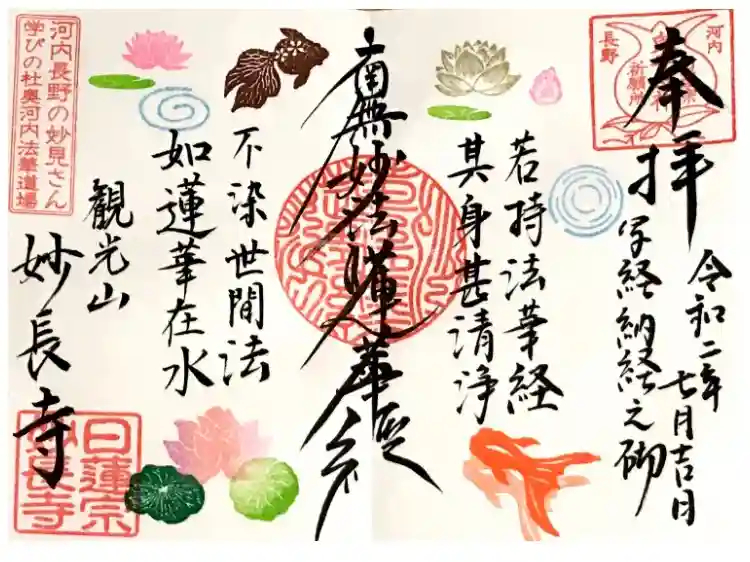 奉拝
河内
長野
祈願所
令和二年七月吉日
写経納経之御
若持法華経
其身甚清浄
南無妙法蓮華経
不染世間法
如蓮華在水
観光山
妙長寺
河内長野の妙見さん
学びの杜奥河内法華道場
日蓮宗
妙長寺